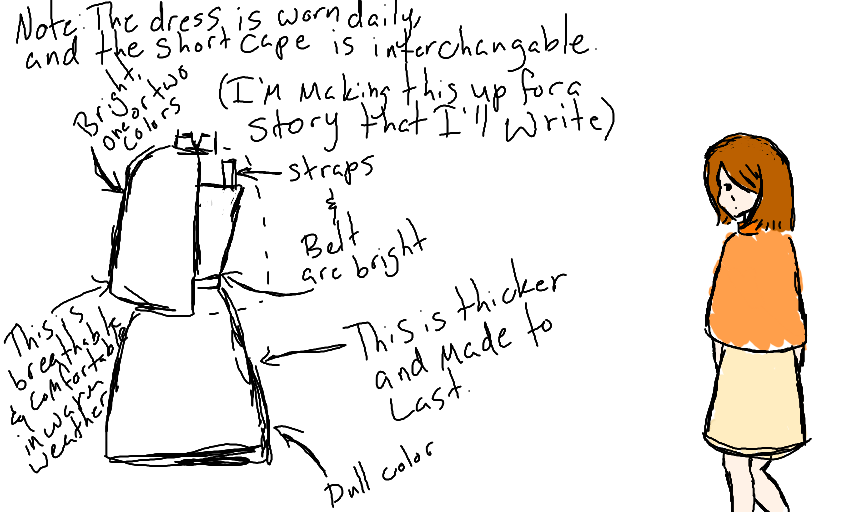 Note: The dress is worn daily,
and the short cape is interchangable.
(I'm making this up for a
story that I'll write)
Bright,
one or two
colors
straps
&
Belt
are bright
This is
breathable
& comfortable
in warm
weather
This is thicker
and made to
Last.
Dull color